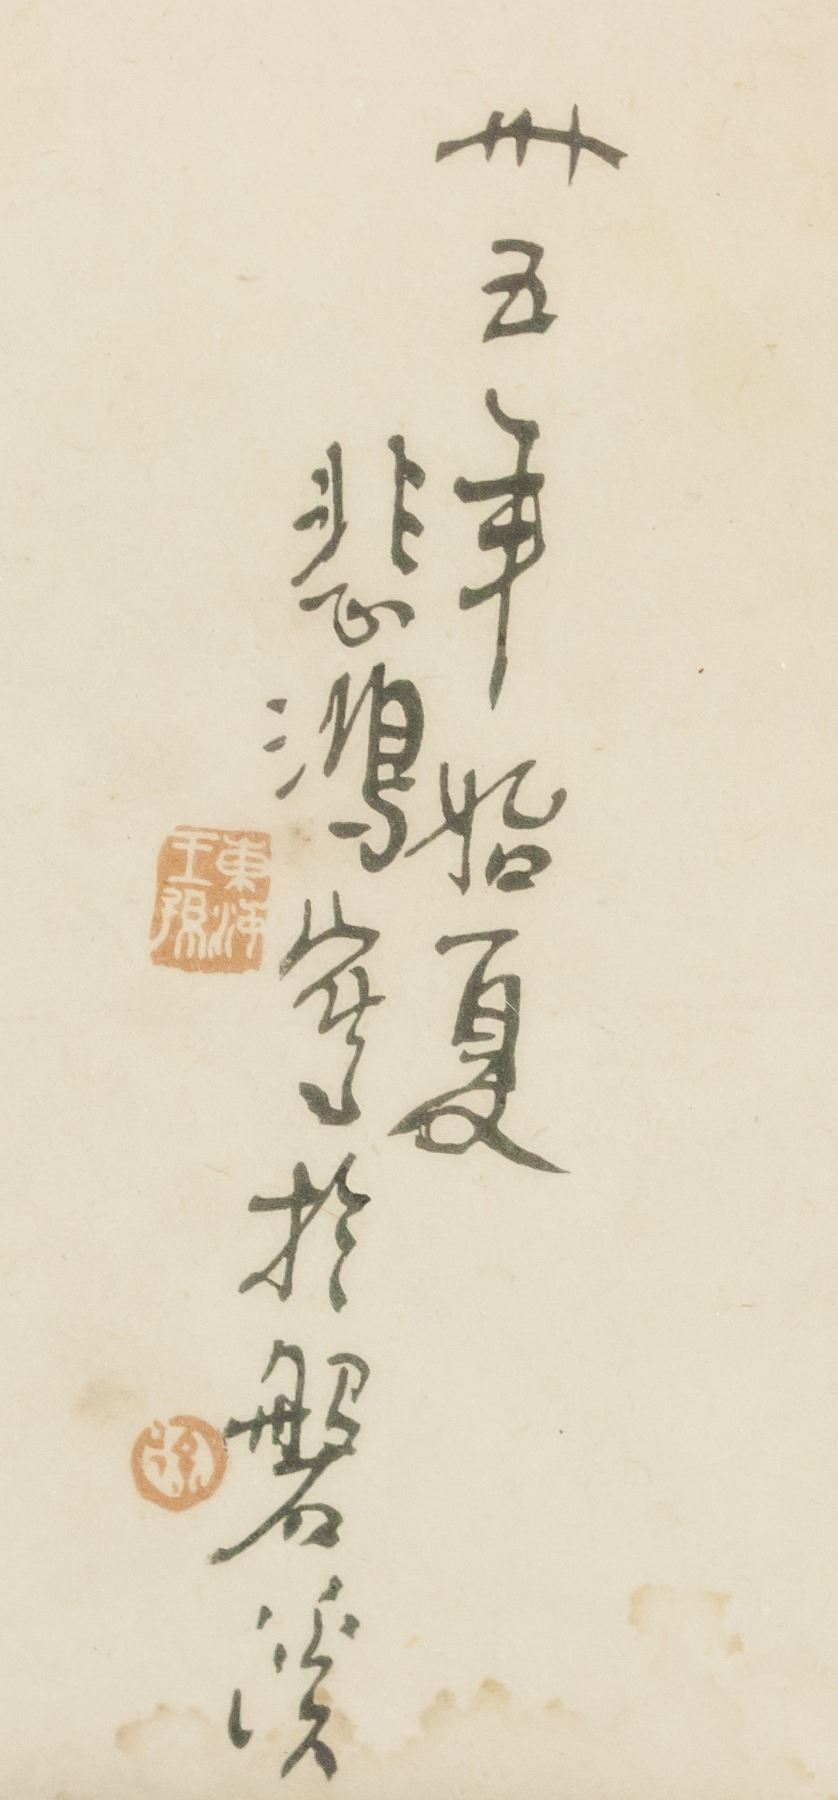 卅五年始夏
悲鴻寫於磐溪
東海王孫